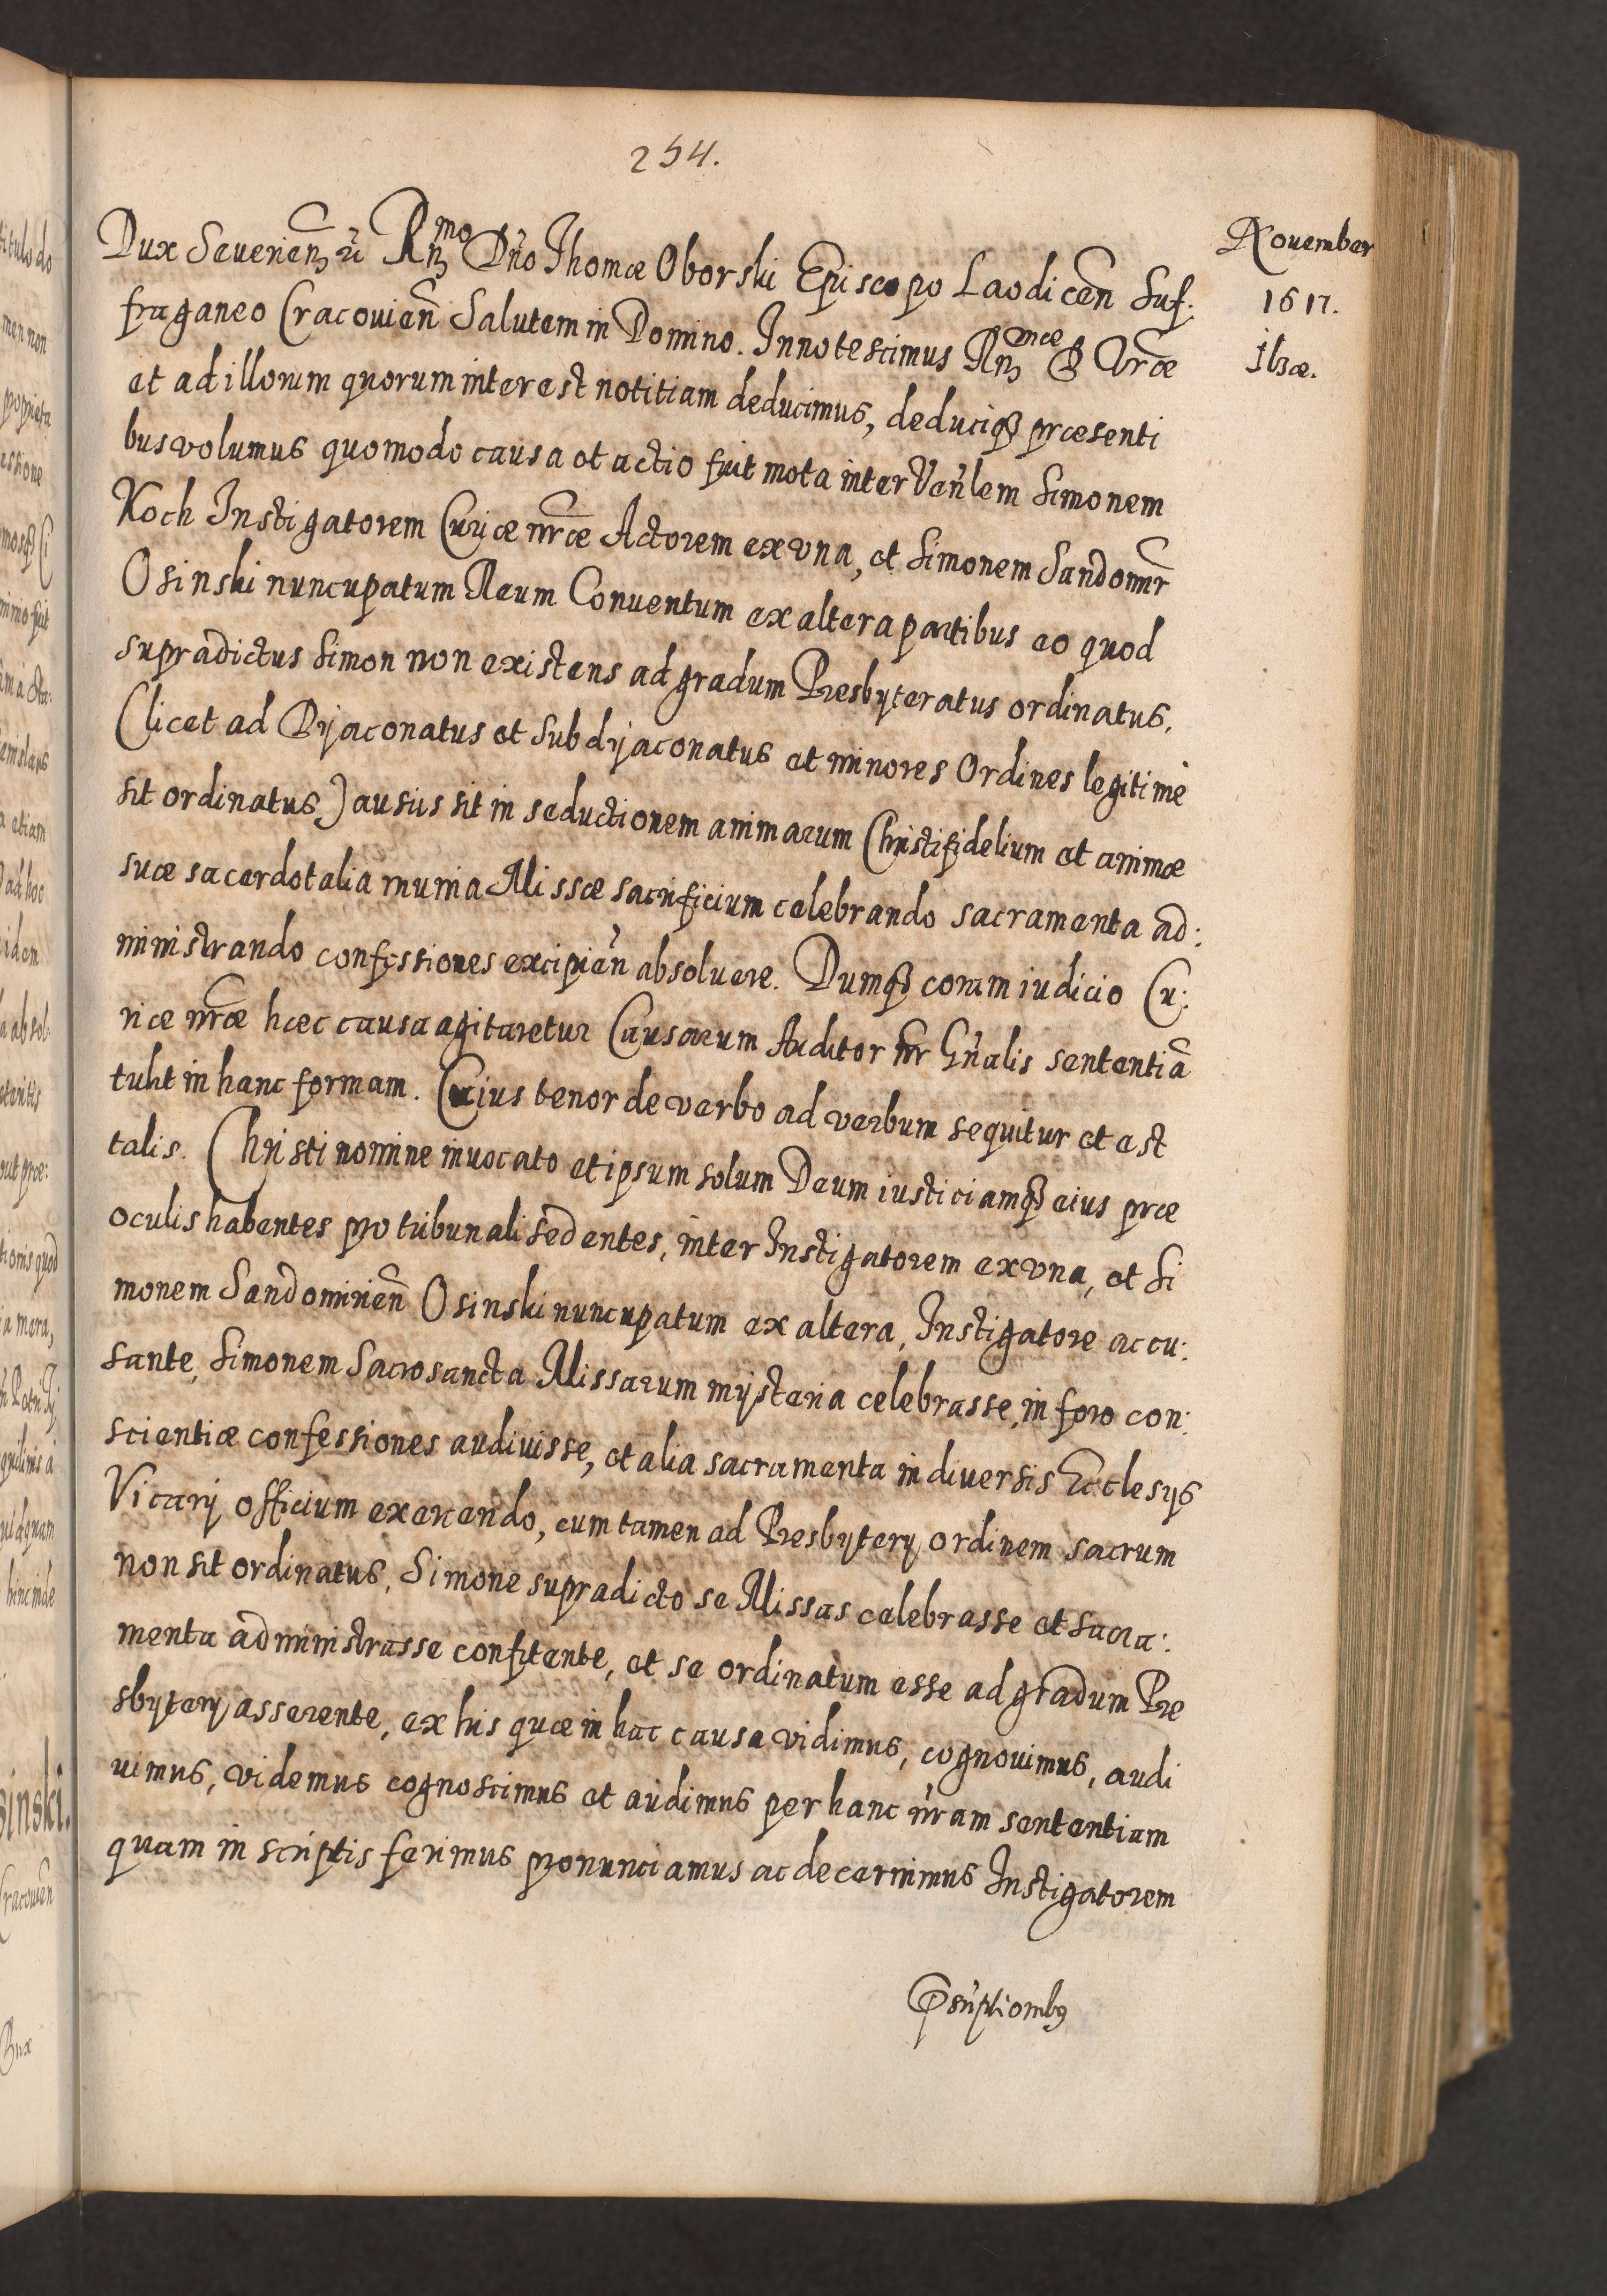 254.
November
1617.
Ilzæ.
Dux Seuerien̄ zc̄ Rn̄mo Dn̄o Thomæ Oborski Episcopo Laodicen̄ Suf:
fraganeo Cracouien̄ Salutem in Domino. Innotescimus Rn̄mæ D Vr̄æ
et ad illorum quorum interest notitiam deducimus, deduciq3 præsenti
bus volumus quomodo causa et actio fuit mota inter Ven̄lem Simonem
Koch Instigatorem Curiæ nr̄æ Actorem ex vna, et Simonem Sandomir̄
Osinski nuncupatum Reum Conuentum ex altera partibus eo quod
supradictus Simon non existens ad gradum Presbyteratus ordinatus,
(licet ad Dyaconatus et Subdyaconatus et minores Ordines legitimè
sit ordinatus) ausus sit in seductionem animarum Christifidelium et animæ
suæ sacerdotalia munia Missæ sacrificium celebrando sacramenta ad:
ministrando confessiones excipien̄ absoluere. Dumq3 coram iudicio Cu:
riæ nr̄æ hæc causa agitaretur Causarum Auditor nr̄ Gn̄alis sententiā
tulit in hanc formam. Cuius tenor de verbo ad verbum sequitur et est
talis. Christi nomine inuocato et ipsum solum Deum iusticiamq3 eius præ
oculis habentes pro tribunali sedentes, inter Instigatorem ex vna, et Si
monem Sandomirien̄ Osinski nuncupatum ex altera, Instigatore accu:
sante, Simonem Sacrosancta Missarum mysteria celebrasse, in foro con:
scientiæ confessiones audiuisse, et alia sacramenta in diuersis Ecclesijs
Vicarij officium exercendo, cum tamen ad Presbyterij ordinem sacrum
non sit ordinatus, Simone supradicto se Missas celebrasse et Sacra:
menta administrasse confitente, et se ordinatum esse ad gradum Pre
sbyterij asserente, ex his quæ in hac causa vidimus, cognouimus, audi
uimus, videmus cognoscimus et audimus per hanc nr̄am sententiam
quam in scriptis ferimus pronunciamus ac decernimus Instigatorem